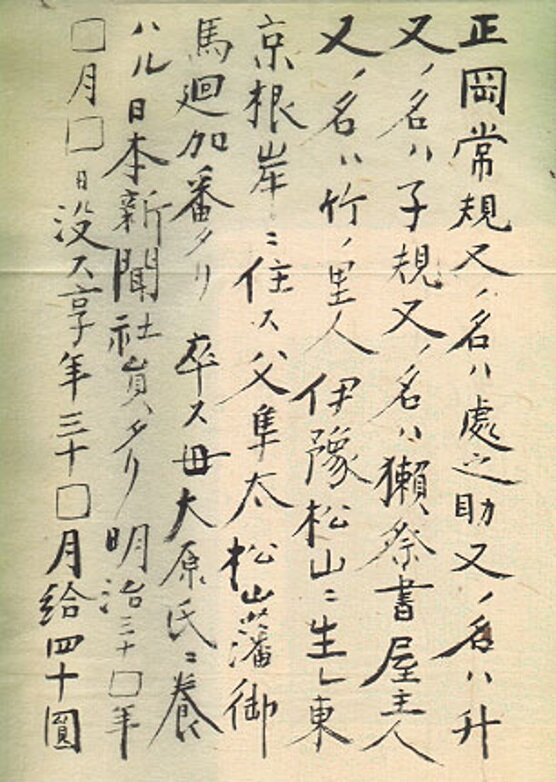 正岡常規又ノ名ハ處之助又ノ名ハ升
又ノ名ハ子規又ノ名ハ獺祭書屋主人
又ノ名ハ竹ノ里人伊豫松山ニ生レ東
京根岸ニ住ス父隼太松山藩御
馬廻加番タリ 卒ス母大原氏ニ養
ハル日本新聞社員タリ明治三十□年
□月□日没ス享年三十□月給四十圓